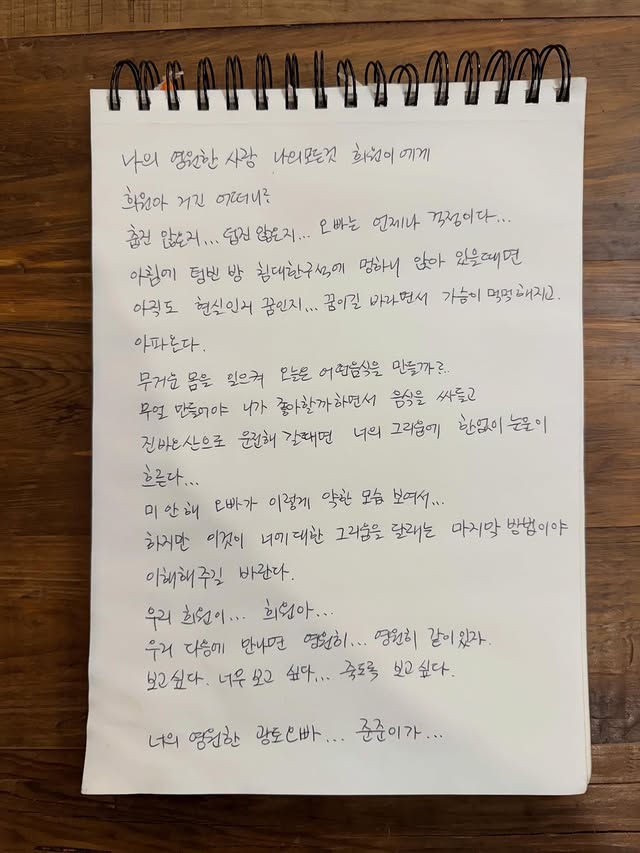 나의 영원한 사랑 나의모든것 희원이에게
희원아 거긴 어떠니?
춥진 않은지... 덥진 않은지... 오빠는 언제나 걱정이다...
아침에 텅빈 방 침대한구석에 멍하니 앉아 있을때면
아직도 현실인지 꿈인지... 꿈이길 바라면서 가슴이 먹먹해지고.
아파온다.
무거운 몸을 일으켜 오늘은 어떤음식을 만들까?..
무얼 만들어야 니가 좋아할까하면서 음식을 싸들고
진바은산으로 운전해 갈때면 너의 그리움에 한없이 눈물이
흐른다...
미안해 오빠가 이렇게 약한 모습 보여서...
하지만 이것이 너에대한 그리움을 달래는 마지막 방법이야
이해해주길 바란다.
우리 희원이... 희원아...
우리 다음에 만나면 영원히... 영원히 같이있자.
보고싶다. 너무 보고 싶다... 죽도록 보고싶다.
너의 영원한 광토오빠... 준준이가...